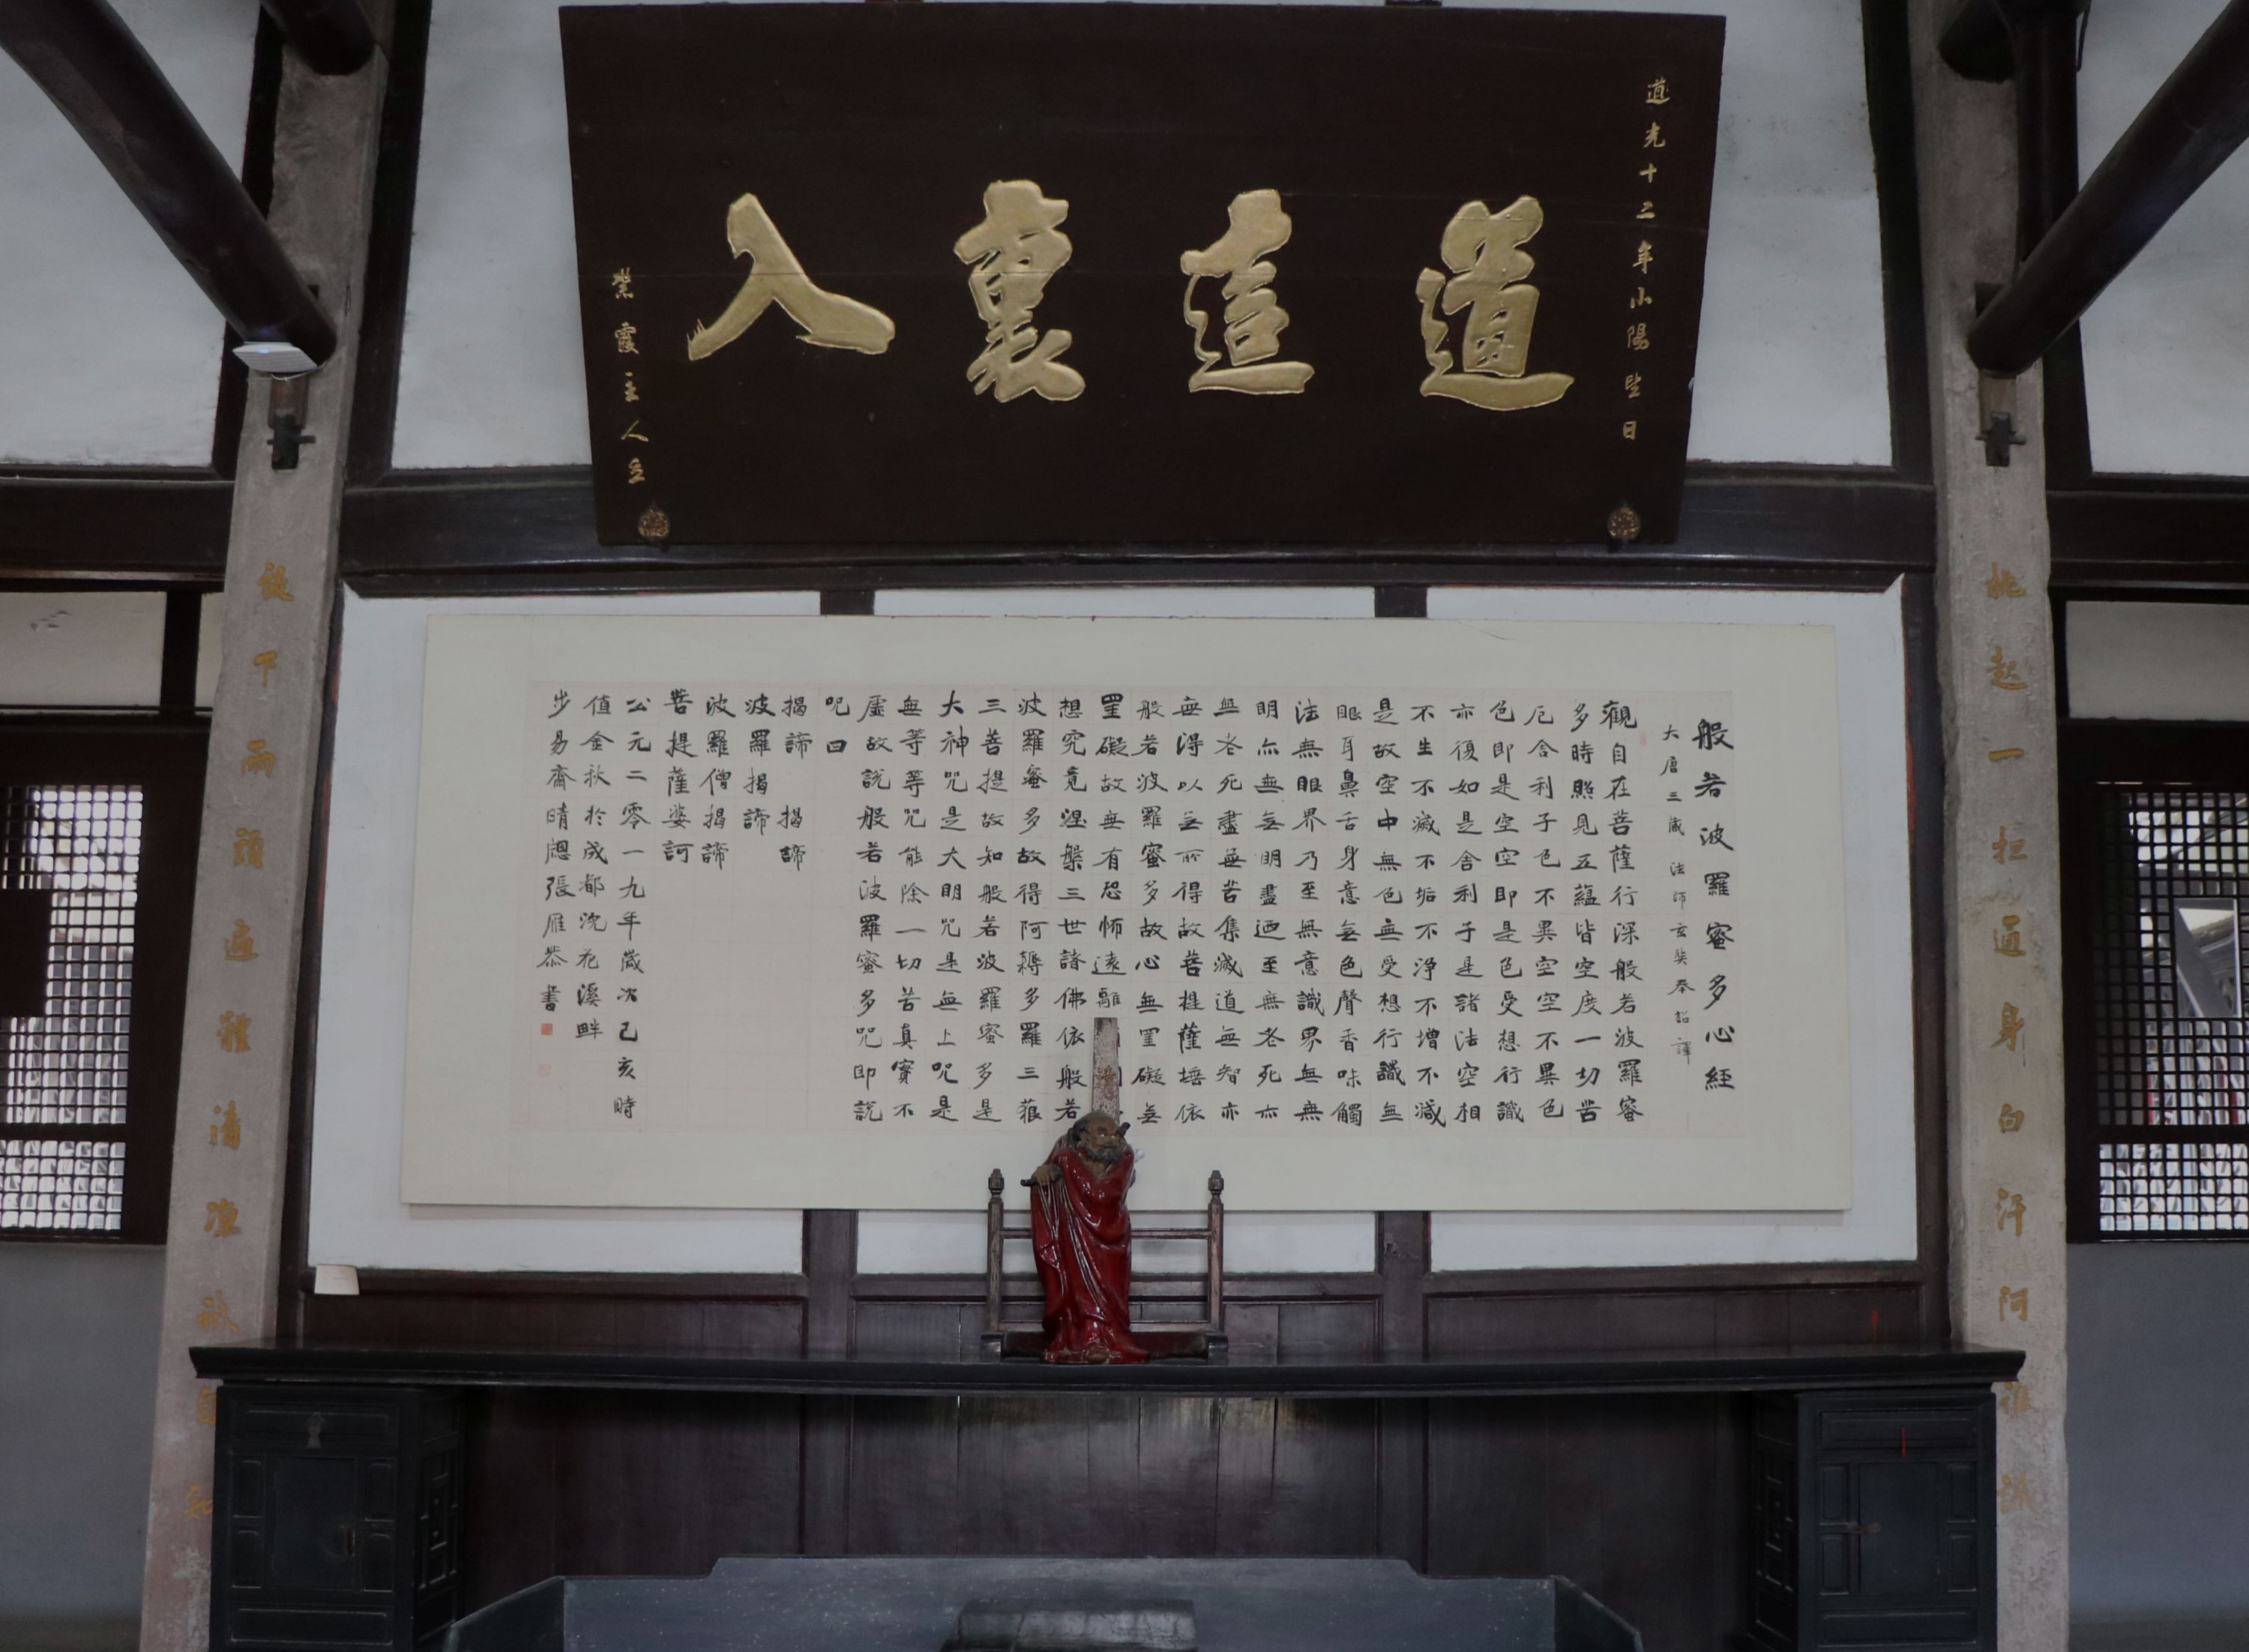 道光十二年小陽望日
道這裏入
紫霞主人立
挑起一担通身白汗阿誰識
般若波羅蜜多心經
大唐三藏法師玄奘奉詔譯
觀自在菩薩行深般若波羅蜜
多時照見五蘊皆空度一切苦
厄舍利子色不異空空不異色
色即是空空即是色受想行識
亦復如是舍利子是諸法空相
不生不滅不垢不淨不增不減
是故空中無色無受想行識無
眼耳鼻舌身意無色聲香味觸
法無眼界乃至無意識界無無
明亦無無明盡迺至無老死亦
無老死盡無苦集滅道無智亦
無得以無所得故菩提薩埵依
般若波羅蜜多故心無罣礙無
罣礙故無有恐怖遠離
想究竟涅槃三世諸佛依般若
波羅蜜多故得阿耨多羅三藐
三菩提故知般若波羅蜜多是
大神咒是大明咒是無上咒是
無等等咒能除一切苦真實不
虛故說般若波羅蜜多咒即說
咒曰
揭諦 揭諦
波羅揭諦
波羅僧揭諦
菩提薩婆訶
公元二零一九年歲次己亥時
值金秋於成都浣花溪畔
步易齋晴窗張雁恭書
放下兩頭遍體清凉祇自知